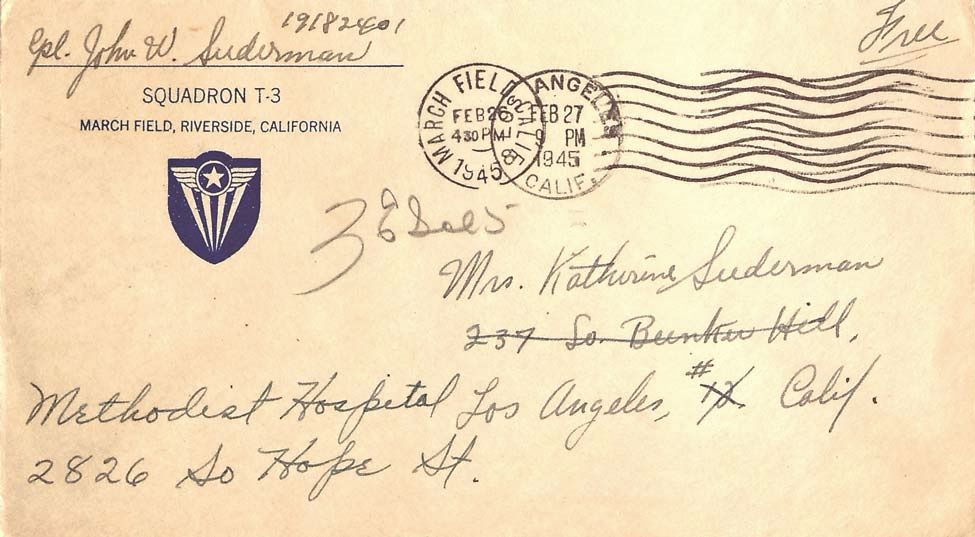 19182401
Cpl. John W. Suderman
Free
SQUADRON T-3
MARCH FIELD, RIVERSIDE, CALIFORNIA
MARCH FIELD CALIF
FEB 26
4 30 PM
1945
ANGELES
FEB 27
9 PM
1945
CALIF.
Mrs. Katherine Suderman
237 So. Bunker Hill,
Los Angeles, #12, Calif.
Methodist Hospital
2826 So Hope St.